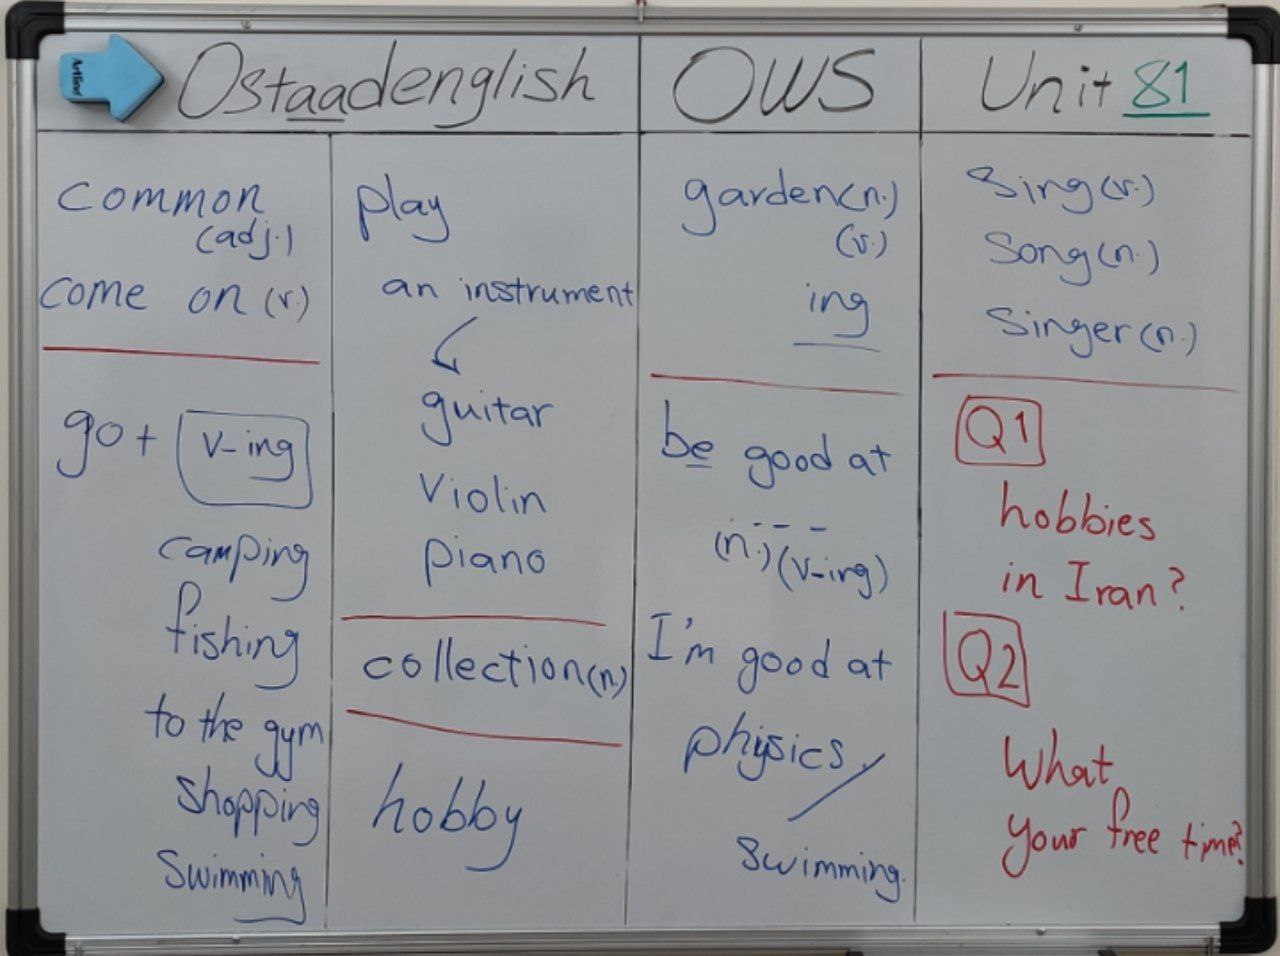 Artline
Ostaadenglish
OWS
Unit 81
common
(adj.)
come on (v.)
go + v-ing
camping
fishing
to the gym
shopping
swimming
play
an instrument
guitar
violin
piano
collection (n.)
hobby
garden (n.)
(v.)
ing
be good at
(n.) (v-ing)
I'm good at
physics.
swimming.
Sing (v.)
Song (n.)
Singer (n.)
Q1
hobbies
in Iran?
Q2
What
your free time?